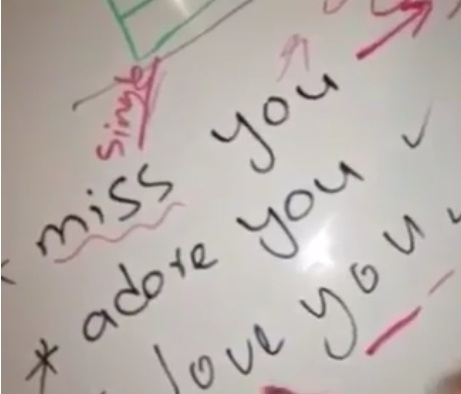 single
miss you
* adore you
love you